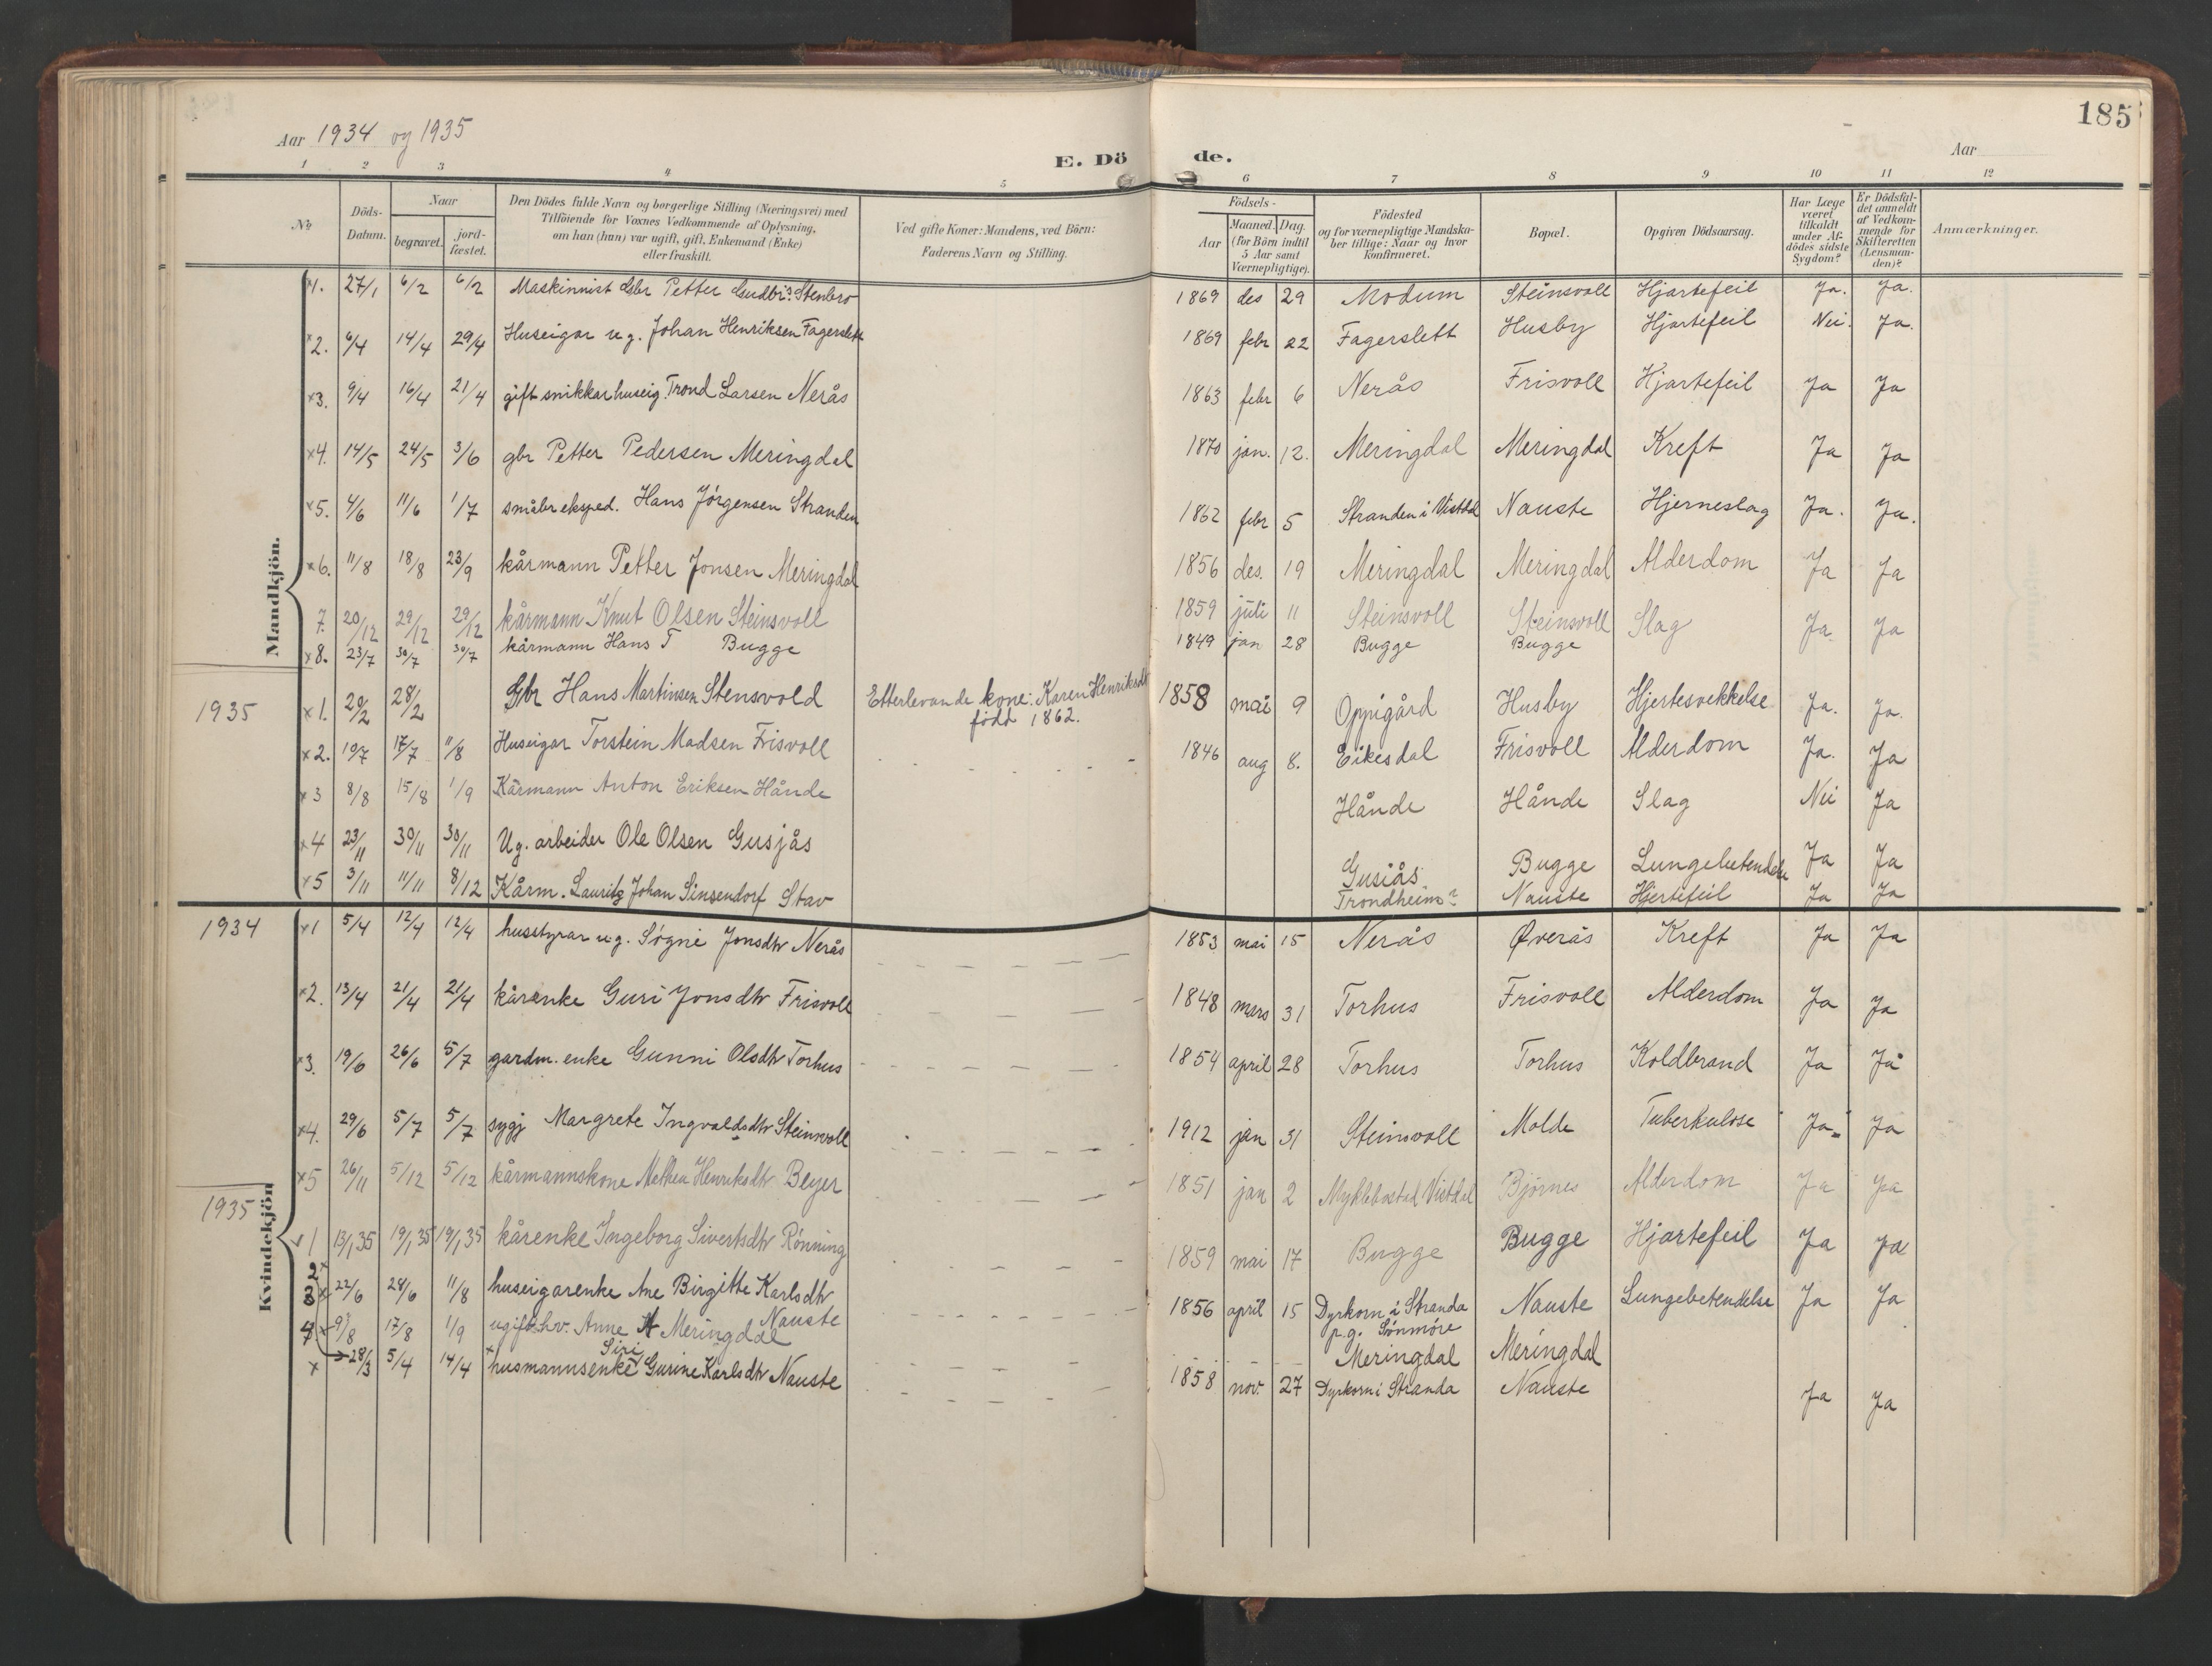 185
Aar 1934 og 1935
E. Dö de.
Aar
1 2 3 4 5 6 7 8 9 10 11 12
No. Döds-Datum. Naar begravet. jord-fæstet. Den Dödes fulde Navn og borgerlige Stilling (Næringsvei) med Tilföiende for Voxnes Vedkommende af Oplysning, om han (hun) var ugift, gift, Enkemand (Enke) eller fraskilt. Ved gifte Koner: Mandens, ved Börn: Faderens Navn og Stilling. Födsels- Aar Maaned. Dag. (for Börn indtil 5 Aar samt Værnepligtige). Födested og for værnepligtige Mandskaber tillige: Naar og hvor konfirmeret. Bopæl. Opgiven Dödsaarsag. Har Læge været tilkaldt under Afdödes sidste Sygdom? Er Dödsfaldet anmeldt af Vedkommende for Skifteretten (Lensmanden)? Anmærkninger.
Mandkjön.
x1. 27/1 6/2 6/2 Maskinnist Gbr Petter Gudbr? Stenbro 1869 des 29 Modum Steinsvoll Hjartefeil Ja. Ja.
x2. 6/4 14/4 29/4 Huseigar ug. Johan Henriksen Fagerslett 1869 febr 22 Fagerslett Husby Hjartefeil Nei. Ja.
x3. 9/4 16/4 21/4 gift snikkar huseig. Trond Larsen Nerås 1863 febr 6 Nerås Frisvoll Hjartefeil Ja Ja
x4. 14/5 24/5 3/6 gbr Petter Pedersen Meringdal 1870 jan. 12. Meringdal Meringdal Kreft Ja Ja
x5. 4/6 11/6 1/7 småbr eksped. Hans Jørgensen Stranden 1862 febr 5 Stranden i Vistdal Nauste Hjerneslag Ja. Ja.
x6. 11/8 18/8 23/9 kårmann Petter Jonsen Meringdal 1856 des. 19 Meringdal Meringdal Alderdom Ja Ja
7. 20/12 29/12 29/12 kårmann Knut Olsen Steinsvoll 1859 juli 11 Steinsvoll Steinsvoll Slag Ja Ja
x8. 23/7 30/7 30/7 kårmann Hans T Bugge 1849 jan 28 Bugge Bugge
1935 x1. 20/2 28/2 Gbr Hans Martinsen Stensvold Etterlevande kone: Karen Henriksdtr født 1862. 1858 mai 9 Oppigård Husby Hjertesvekkelse Ja. Ja.
x2. 10/7 17/7 11/8 Huseigar Torstein Madsen Frisvoll 1846 aug 8. Eikesdal Frisvoll Alderdom Ja. Ja
x3 8/8 15/8 1/9 Kårmann Anton Eriksen Hånde Hånde Hånde Slag Nei Ja
x4 23/11 30/11 30/11 Ug. arbeider Ole Olsen Gusjås Gusiås Bugge Lungebetendelse Ja Ja
x5 3/11 11/11 8/12 Kårm. Lauritz Johan Sinsendorf Stav Trondheim? Nauste Hjertefeil Ja Ja
Kvindekjön
1934 x1 5/4 12/4 12/4 husstyrar ug. Søgni Jonsdtr Nerås 1853 mai 15 Nerås Øverås Kreft Ja Ja
x2. 13/4 21/4 21/4 kårenke Guri Jonsdtr Frisvoll 1848 mars 31 Torhus Frisvoll Alderdom Ja Ja
x3. 19/6 26/6 5/7 gardm. enke Gunni Olsdtr Torhus 1854 april 28 Torhus Torhus Koldbrand Ja Ja
x4. 29/6 5/7 5/7 sygj Margrete Ingvaldsdtr Steinsvoll 1912 jan 31 Steinsvoll Molde Tuberkulose Ja Ja
x5 26/11 5/12 5/12 kårmannskone Mathea Henriksdtr Beyer 1851 jan 2 Myklebostad Vistdal Bjørnes Alderdom Ja Ja
1935 1 13/1 35 19/1 35 19/1 35 kårenke Ingeborg Sivertsdtr Rønning 1859 mai 17 Bugge Bugge Hjartefeil Ja Ja
2x
3x 22/6 28/6 11/8 huseigarenke Ane Birgitte Karlsdtr Nauste 1856 april 15 Dyrkorn i Stranda p.g. Sönmöre Nauste Lungebetendelse Ja Ja
4x 9/8 17/8 1/9 ugift hv. Anne A Meringdal Meringdal Meringdal
x 28/3 5/4 14/4 husmannsenke Siri Gurine Karlsdtr Nauste 1858 nov. 27 Dyrkorn i Stranda Nauste Ja Ja